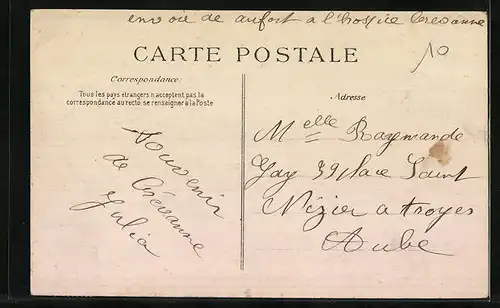 envoie de aufort a l'hospice Cresanne
CARTE POSTALE
10
Correspondance:
Tous les pays étrangers n'acceptent pas la
correspondance au recto, se renseigner à la Poste
Adresse
Souvenir
de Crézanne
Julia
Melle Raymande
Jay 39 place Saint
Nizier a troyes
Aube